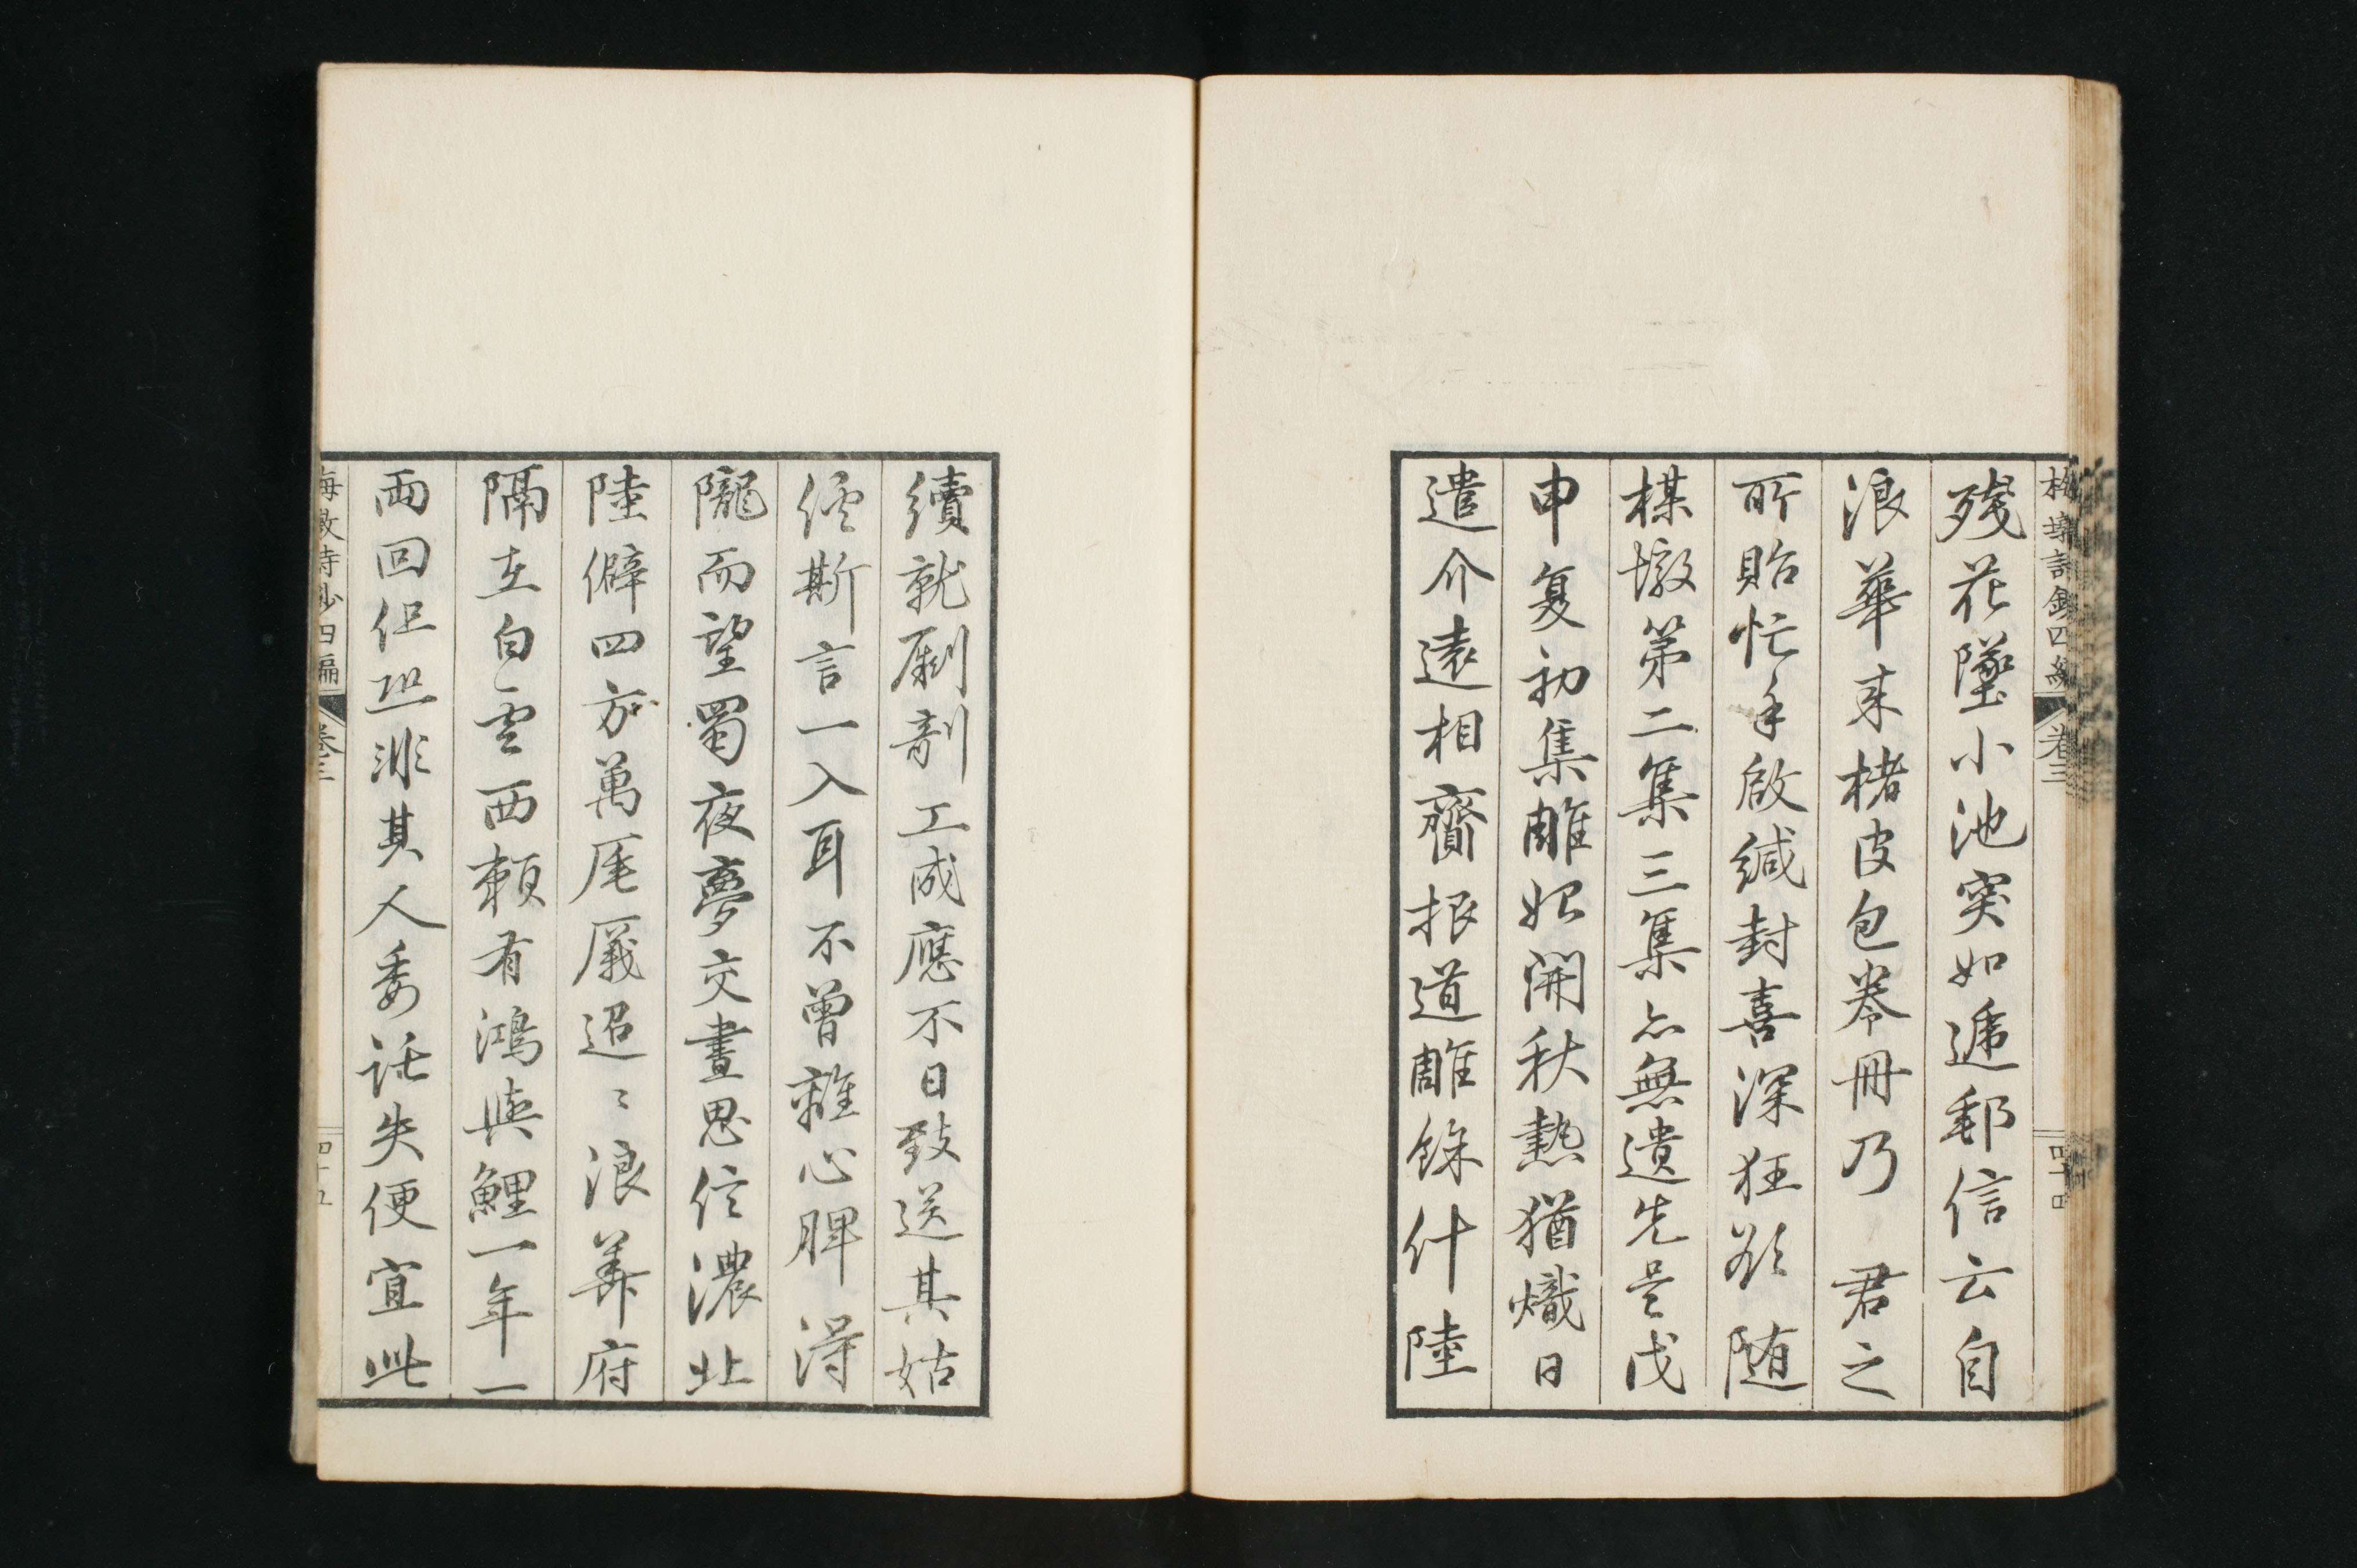 殘花墜小池突如遞郵信云自
浪華来楮皮包券冊乃君之
所貽忙手啟緘封喜深狂欲随
楳墩第二集三集亦無遺先是戊
申夏初集雕始開秋熱猶熾日
遣介遠相齎報道雕餘什陸
四十四
續就劂剞工成應不日致送其姑
俟斯言一入耳不曾離心脾得
隴而望蜀夜夢交晝思信濃北
陸僻四方萬尾厳迢〻浪華府
隔在白雲西頼有鴻與鯉一年一
両回但恐非其人委託失便宜此
卷三
四十五